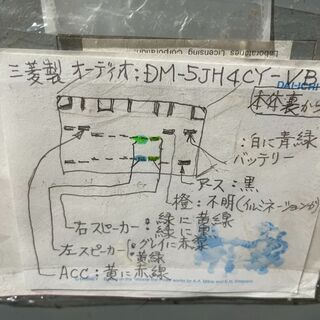 Laboratories Licensing Corporation.
三菱製 オーディオ:DM-5JH4CY-VB
DAIICHI
本体裏から
:白に青緑
バッテリー
アース:黒
橙:不明(イルミネーションか
右スピーカー:緑に黄線
緑に黒
左スピーカー:グレイに赤線
:黄緑
ACC:黄に赤線